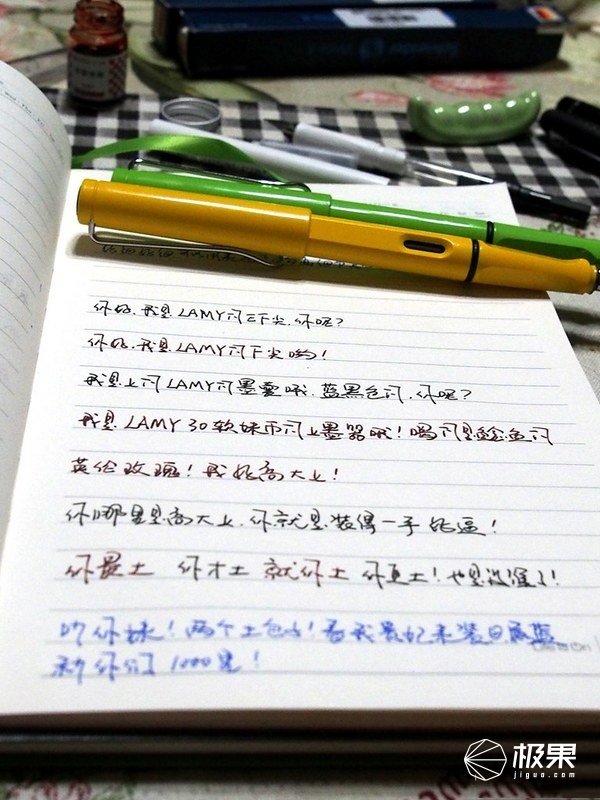 你好,我是LAMY的EF尖,你呢?
你好,我是LAMY的F尖哟!
我是上的LAMY的墨囊哦,蓝黑色的,你呢?
我是LAMY 30软妹币的上墨器哦!喝的是鲶鱼的
英伦玫瑰!我好高大上!
你哪里是高大上,你就是装得一手好逼!
你最土 你才土 就你土 你更土!也是没谁了!
吵你妹!两个土包子!看我
秒你们1000里!
极果
jiguo.com